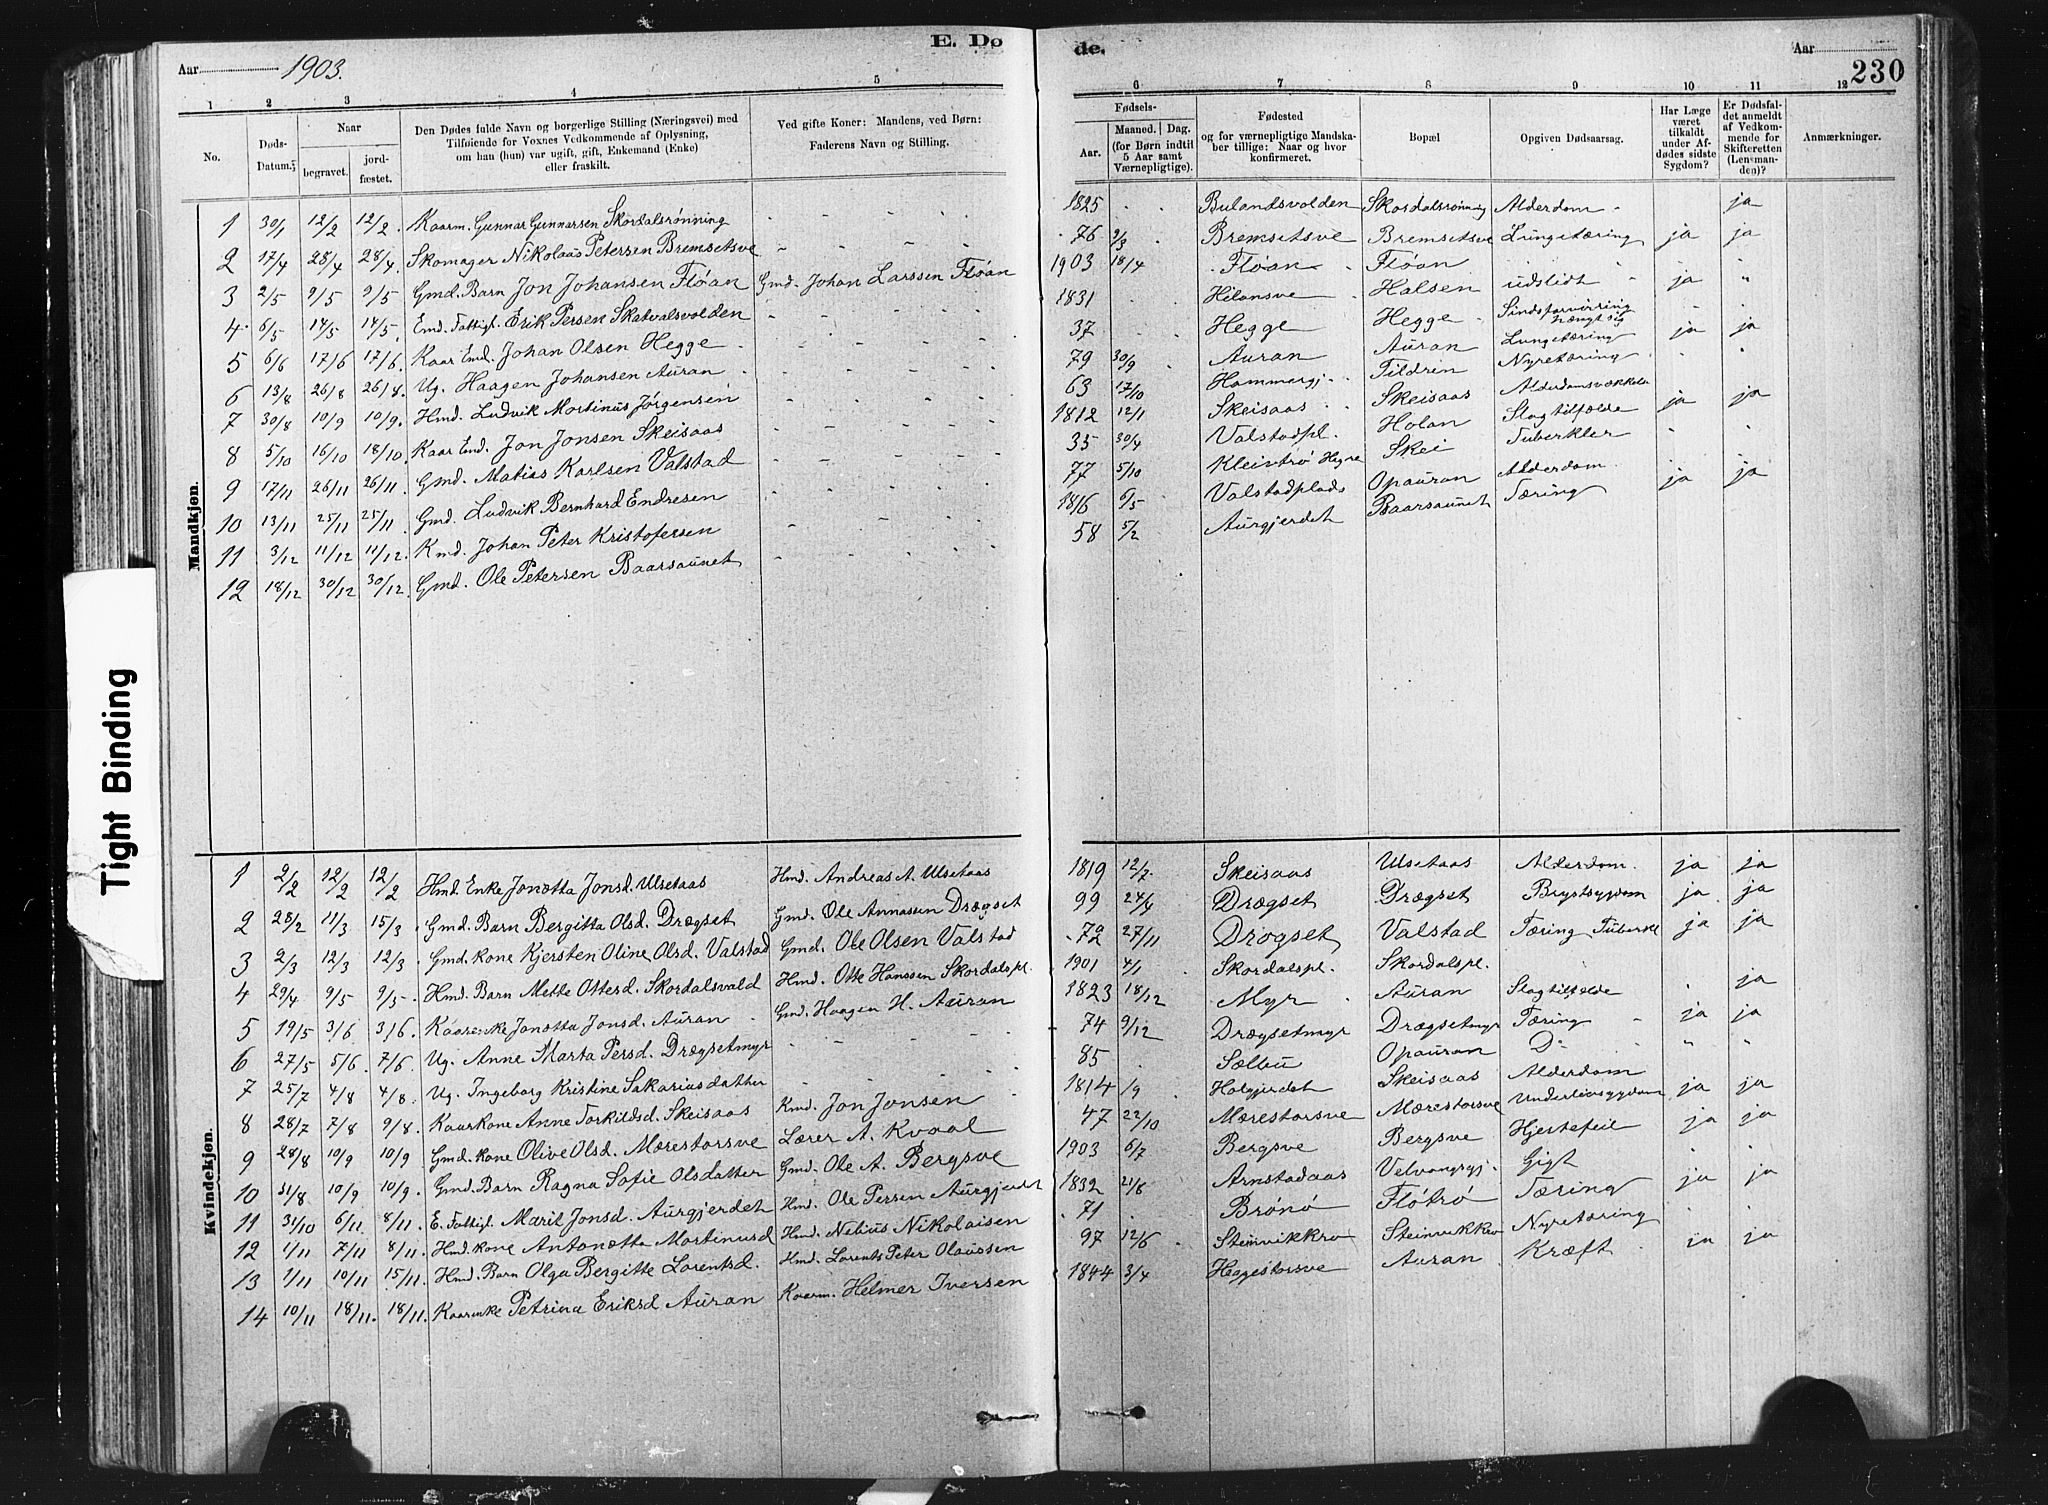 E. Dø
de.
Aar 1903.
Aar
230
1 2 3 4 5
6 7 8 9 10 11 12
No.
Døds-Datum.
Naar
begravet.
jord-fæstet.
Den Dødes fulde Navn og borgerlige Stilling (Næringsvei) med
Tilføiende for Voxnes Vedkommende af Oplysning,
om han (hun) var ugift, gift, Enkemand (Enke)
eller fraskilt.
Ved gifte Koner: Mandens, ved Børn:
Faderens Navn og Stilling.
Fødsels-
Aar.
Maaned. Dag.
(for Børn indtil
5 Aar samt
Værnepligtige).
Fødested
og for værnepligtige Mandska-
ber tillige: Naar og hvor
konfirmeret.
Bopæl
Opgiven Dødsaarsag.
Har Læge
været
tilkaldt
under Af-
dødes sidste
Sygdom?
Er Dødsfal-
det anmeldt
af Vedkom-
mende for
Skifteretten
(Lensman-
den)?
Anmærkninger.
Mandkjøn.
1 30/1 12/2 12/2. Kaarm. Gunnar Gunnarsen Skordalsrønning - - - - 1825 Bulandsvolden Skordalsrønning Alderdom - ja
2 17/4 28/4 28/4. Skomager Nikolaas Petersen Bremsetsve - - - - 76 9/3 Bremsetsve Bremsetsve Lungetæring ja ja
3 2/5 9/5 9/5. Gmd. Barn Jon Johansen Fløan Gmd. Johan Larssen Fløan 1903 18/4 Fløan Fløan
4 6/5 14/5 14/5. Emd. Fattigl. Erik Persen Skatvalsvolden - - - - 1831 Hilansve Halsen udslidt " ja "
5 6/6 17/6 17/6. Kaar Emd. Johan Olsen Hegge - - - - 37 Hegge Hegge Sindsforvirring hængt sig
6 13/8 26/8 26/8. Ug. Haagen Johansen Auran - - - - 79 30/9 Auran Auran Lungetæring ja ja
7 30/8 10/9 10/9. Hmd. Ludvik Mortinus Jørgensen - - - - 63 17/10 Hammergj. Tildren Nyretæring " "
8 5/10 16/10 18/10. Kaar Emd. Jon Jonsen Skeisaas - - - - 1812 12/1 Skeisaas Skeisaas ja ja
9 17/11 26/11 26/11. Gmd. Matias Karlsen Valstad - - - - 35 30/4 Valstadpl. Holan Slagtilfælde
10 13/11 25/11 25/11. Gmd. Ludvik Bernhard Endresen - - - - 77 5/10 Kleivtrø Hegre Skei Tuberkler ja ja
11 3/12 11/12 11/12. Kmd. Johan Peter Kristofersen - - - - 1816 9/5 Valstadplads Opauran Alderdom
12 18/12 30/12 30/12. Gmd. Ole Petersen Baarsaunet - - - - 58 5/2 Aurgjerdet Baarsaunet Tæring
Kvindekjøn.
1 2/2 12/2 12/2 Hmd. Enke Jonetta Jonsd. Ulsetaas Hmd. Andreas A. Ulsetaas 1819 12/7 Skeisaas Ulsetaas Alderdom. ja ja
2 28/2 11/3 15/3 Gmd. Barn Bergitta Olsd. Drøgset Gmd. Ole Annassen Drøgset 99 24/4 Drøgset Drøgset Brystsygdom ja ja
3 2/3 12/3 12/3 Gmd. kone Kjersten Oline Olsd. Valstad Gmd. Ole Olsen Valstad 72 27/11 Drøgset Valstad Tæring Tuberkl ja ja
4 29/4 9/5 9/5. Hmd. Barn Mette Ottersd. Skordalsvald Hmd. Otte Hanssen Skordalspl. 1901 4/1 Skordalspl. Skordalspl.
5 19/5 3/6 3/6. Kaarenke Jonetta Jonsd. Auran Gmd. Haagen H. Auran 1823 18/12 Myr Auran Slagtilfælde ja
6 27/5 5/6 7/6 Ug. Anne Marta Persd. Drøgsetmyr - - - 74 9/12 Drøgsetmyr Drøgsetmyr Tæring ja ja
7 25/7 4/8 4/8. Ug. Ingeborg Kristine Sakariasdatter - - - 85 Selbu Opauran Do " "
8 28/7 7/8 9/8. Kaarkone Anne Torkildsd. Skeisaas Kmd. Jon Jonsen 1814 1/9 Holgjerdet Skeisaas Alderdom ja ja
9 28/8 10/9 10/9 Gmd. kone Olive Olsd. Mærestorsve Lærer A. Kvaal 47 22/10 Mærestorsve Mærestorsve Underlivssygdom
10 31/8 10/9 10/9. Gmd. Barn Ragna Sofie Olsdatter Gmd. Ole A. Bergsve 1903 6/7 Bergsve Bergsve Hjertefeil ja ja
11 31/10 6/11 8/11. E. Fattigl. Marit Jonsd. Aurgjerdet Hmd. Ole Persen Aurgjerdet 1832 21/8 Arnstadaas Velvangsgj. Gigt
12 1/11 7/11 8/11. Hmd. kone Antonetta Mortinusd Hmd. Nelius Nikolaisen 71 Brønø Fløtrø Tæring ja ja
13 1/11 10/11 15/11. Hmd. Barn Olga Bergitte Lorentsd. Hmd. Lorents Peter Olaussen 97 12/6 Steinvikkro Steinvikkro Nyretæring
14 10/11 18/11. 18/11. Kaarenke Petrina Eriksd Auran Kaarm. Helmer Iversen 1844 3/4 Heggestorsve Auran Kræft ja ja
Tight Binding